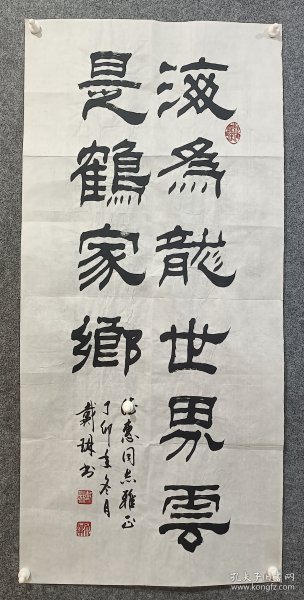 海為龍世界雲
是鶴家鄉
惠同志雅正
丁卯年冬月
戴琳书
孔夫子旧书网
www.kongfz.com